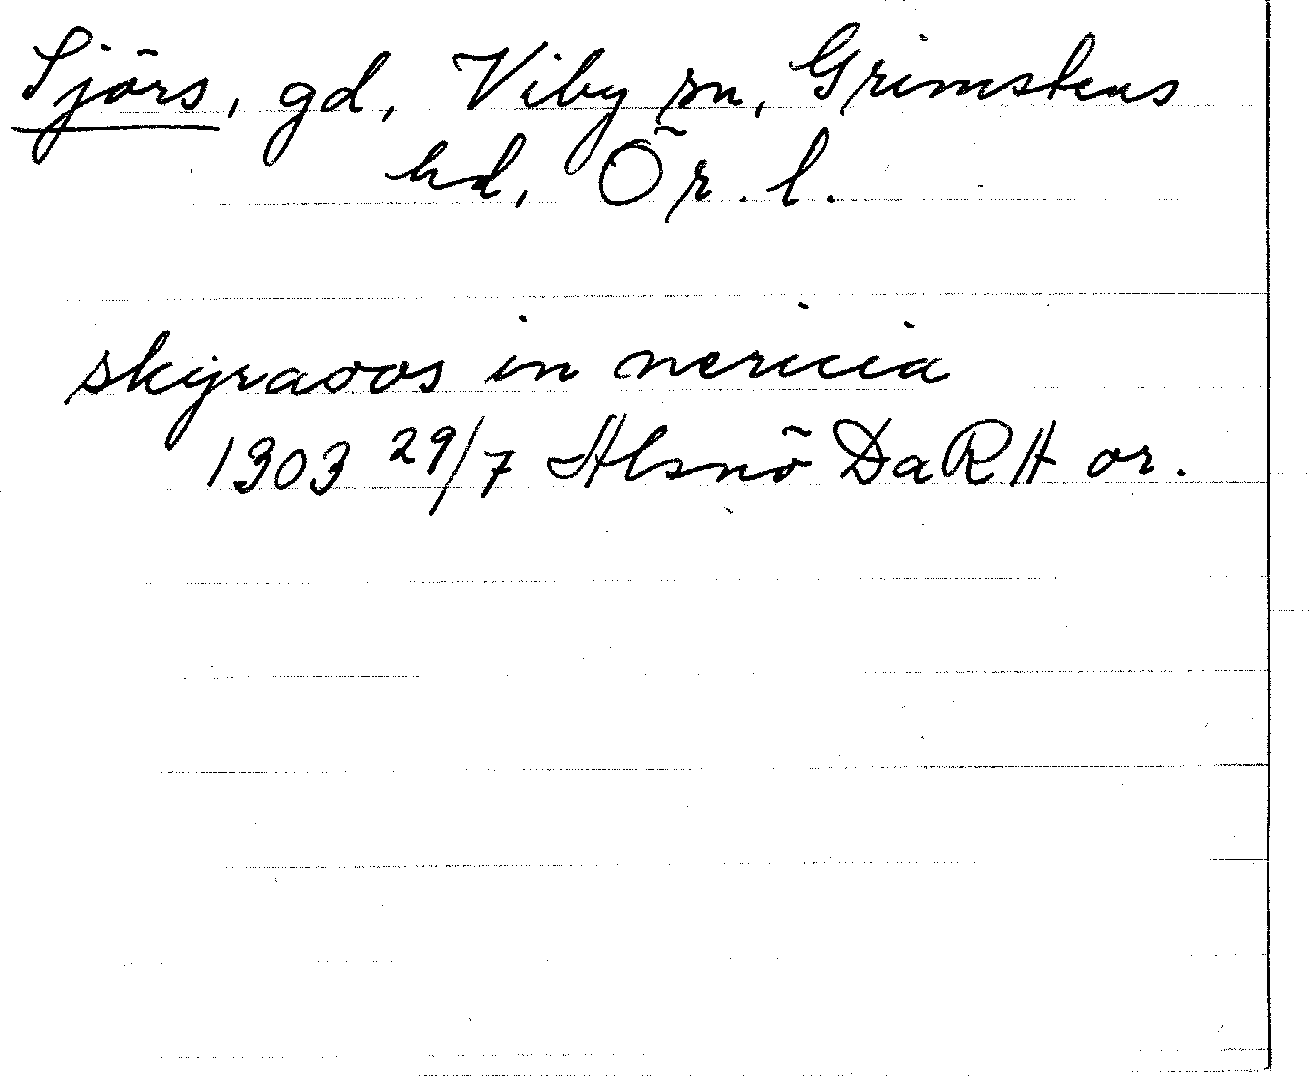 Sjörs, gd, Viby sn, Grimstens
hd, Ör. l.
skyraoos in nericia
1303 29/7 Alsnö DaRA or.